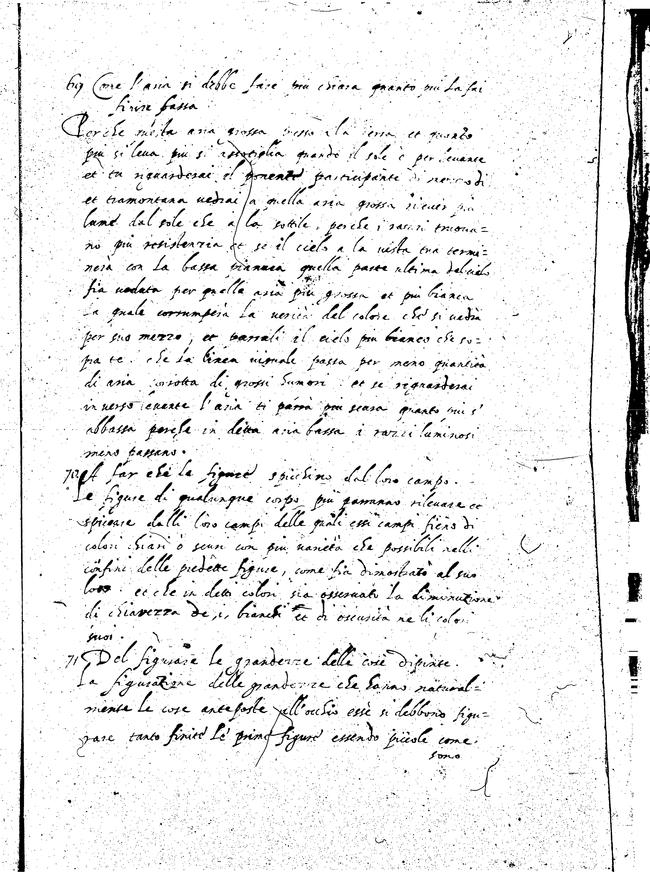 69 Come l'aria si debbe fare più chiara quanto più la fai
finire bassa
Perche questa aria grossa presso alla terra et quanto
più si leva più s'assotiglia quando il sole è per levante
et tu riguarderai el ponente participante di mezzo di
et tramontana vedrai quella aria grossa ricever più
lume dal sole che la sottile, perche i razzi truova=
no più resistenzia et se il cielo a la vista tua termi=
nerà con la bassa pianura quella parte ultima del cielo
fia veduta per quella aria più grossa et più bianca
la quale corrumperà la verità del colore che si vedrà
per suo mezzo, et parratti il cielo più bianco che so=
pra te. che la linea visuale passa per meno quantità
di aria corrotta di grossi humori: et se riguarderai
inverso levante l'aria ti parrà più scura quanto più s'
abbassa perche in detta aria bassa i razzi luminosi
meno passano.
70 A far che le figure spicchino dal loro campo.
Le figure di qualunque corpo più parranno rilevare et
spicare dalli loro campi delle quali essi campi fieno di
colori chiari o scuri con più varietà che possibili nelli
confini delle predette figure, come fia dimostrato al suo
loco. et che in detti colori sia osservati la diminutione
di chiarezza de i bianchi et di oscurità ne li colori
suoi.
71 Del figurare le grandezze delle cose dipinte.
La figuratione delle grandezze che hanno natural=
mente le cose anteposte all'occhio esse si debbono figu=
rare tanto finite le prime figure essendo piccole come
sono